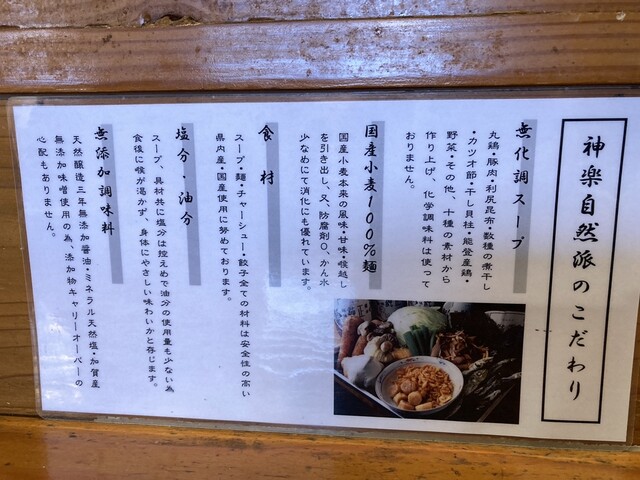 神楽自然派のこだわり
無化調スープ
丸鶏・豚肉・利尻昆布・数種の煮干し
・カツオ節・干し貝柱・能登産鶏・
野菜・その他、十種の素材から
作り上げ、化学調味料は使って
おりません。
国産小麦100%麺
国産小麦本来の風味・甘味・喉越し
を引き出し、又、防腐剤0、かん水
少なめにて消化にも優れています。
食材
スープ・麺・チャーシュー・餃子全ての材料は安全性の高い
県内産・国産使用に努めております。
塩分・油分
スープ、具材共に塩分は控えめで油分の使用量も少ない為
食後に喉が渇かず、身体にやさしい味わいかと存じます。
無添加調味料
天然醸造三年無添加醤油・ミネラル天然塩・加賀産
無添加味噌使用の為、添加物キャリーオーバーの
心配もありません。